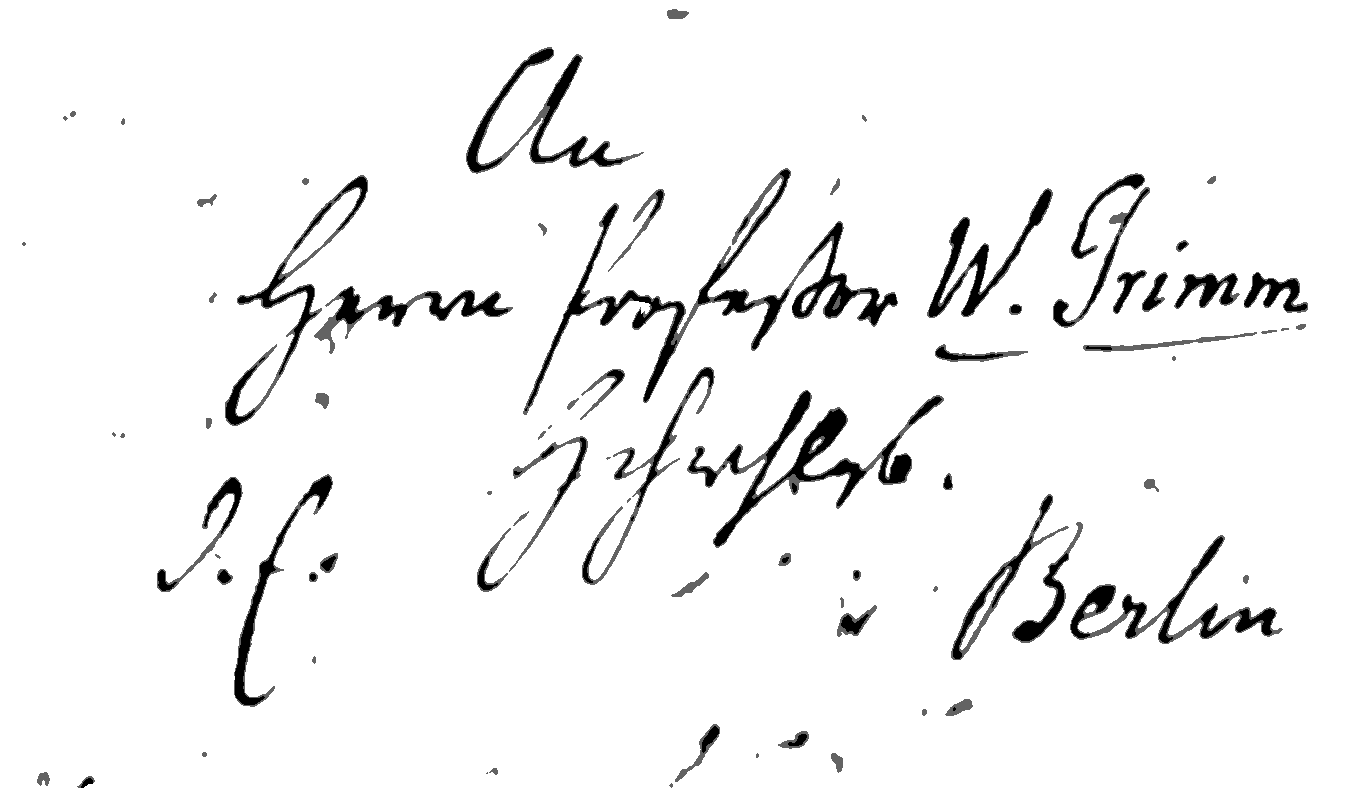 An
Herrn Professor W. Grimm
Hochwohlgb.
d. E.
in Berlin